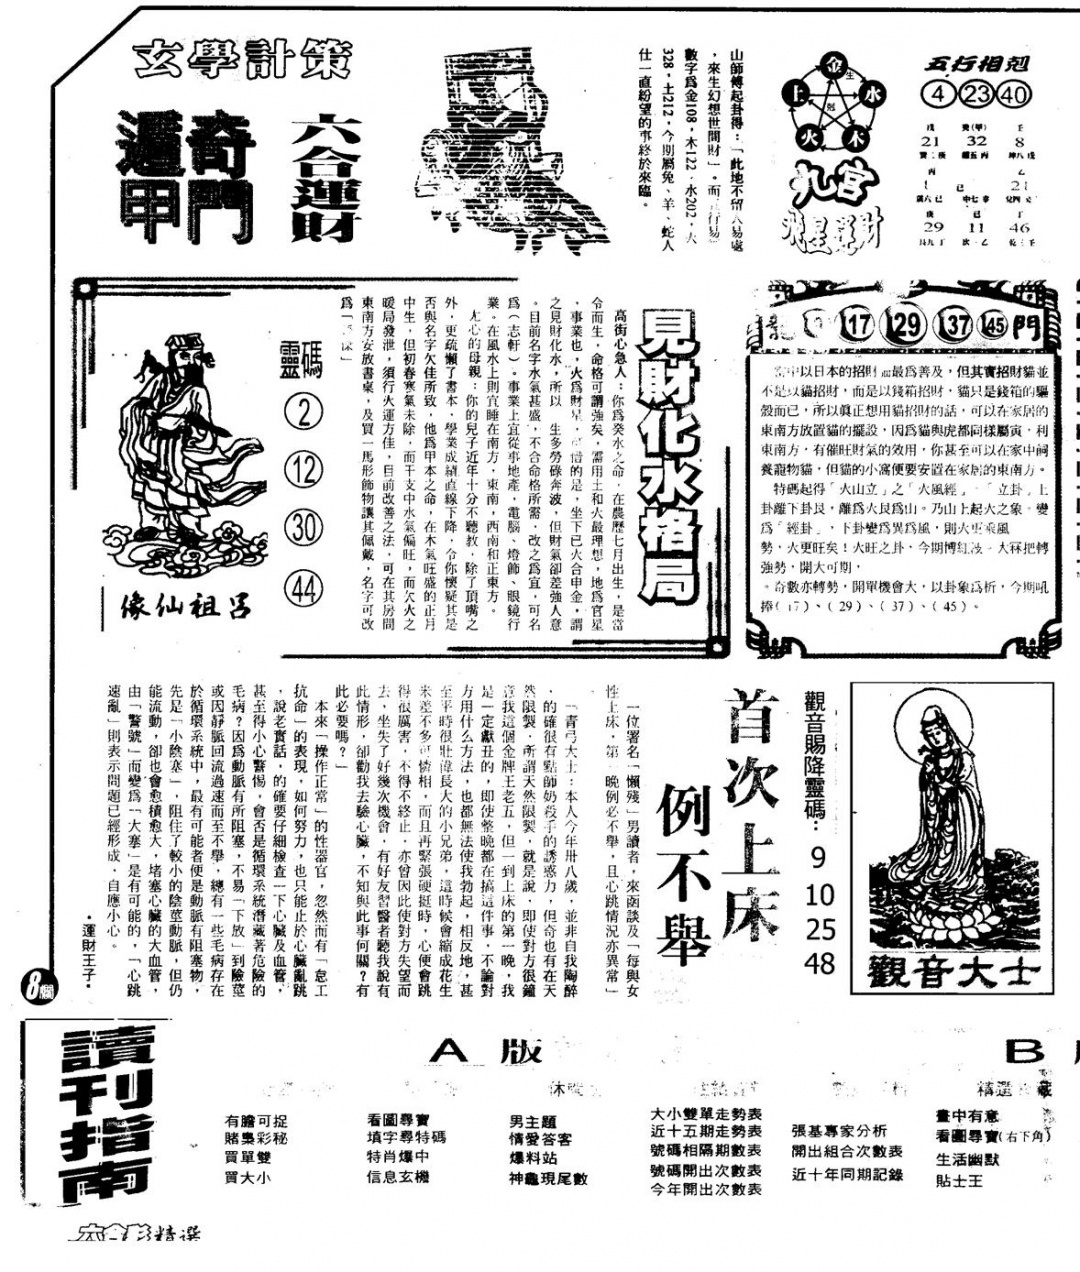 玄學計策
奇門
遁甲
六合運財
山師傅起卦得：「此地不留人易處
，來生幻想世間財」。而
數字為金108，木122，水202，火
328，土212，今期屬兔、羊、蛇人
仕一直紛望的事終於來臨。
金
生
水
木
火
土
剋
九宮
飛星運財
五行相剋
4 23 40
戊 癸(甲) 壬
21 32 8
丙 乙
1 己 21
庚 己 丁
29 11 46
靈碼
2
12
30
44
呂祖仙像
見財化水格局
高街心急人：你為癸水之命，在農歷七月出生，是當
令而生，命格可謂強矣，需用土和火最理想，地為官星
，事業也，火為財星，可惜的是，坐下已火合申金，謂
之見財化水，所以一生多勞碌奔波，但財氣卻差強人意
。目前名字水氣甚盛，不合命格所需，改之為宜，可名
為（志軒）。事業上宜從事地產，電腦、燈飾、眼鏡行
業。在風水上則宜睡在南方，東南，西南和正東方。
尤心的母親：你的兒子近年十分不聽教，除了頂嘴之
外，更疏懶了書本，學業成績直線下降，令你懷疑其是
否與名字欠佳所致，他為甲本之命，在木氣旺盛的正月
中生，但初春寒氣未除，而干支中水氣偏旺，而欠火之
暖局發泄，須行火運方佳，目前改善之法，可在其房間
東南方安放書桌，及買一馬形飾物讓其佩戴，名字可改
龍 9 17 29 37 45 門
以日本的招財 最為善及，但其實招財貓並
不是以貓招財，而是以錢箱招財，貓只是錢箱的軀
殼而已，所以真正想用貓招財的話，可以在家居的
東南方放置貓的擺設，因為貓與虎都同樣屬寅，利
東南方，有催旺財氣的效用，你甚至可以在家中飼
養寵物貓，但貓的小窩便要安置在家居的東南方。
特碼起得「火山立」之「火風經」，「立卦」上
卦離下卦艮，離為火艮為山。乃山上起火之象。變
為「經卦」，下卦變為異為風，則火更乘風
勢，火更旺矣！火旺之卦，今期博紅波。大冧把轉
強勢，開大可期，
。奇數亦轉勢，開單機會大，以卦象為析，今期吼
捧(17)、(29)、(37)、(45)。
首次上床
例不舉
一位署名「懶殘」男讀者，來函談及「每與女
性上床，第一晚例必不舉，且心跳情況亦異常」
「青弓大士：本人今年卅八歲，並非自我陶醉
，的確很有點師奶殺手的誘惑力，但奇也有在天
然限製，所謂天然限製，就是說，即使對方很鐘
意我這個金牌王老五，但一到上床的第一晚，我
是一定獻丑的，即使整晚都在搞這件事，不論對
方用什么方法，也都無法使我勃起，相反地，甚
至平時很壯偉長大的小兄弟，這時候會縮成花生
米差不多可憐相，而且再緊張硬挺時，心便會跳
得很厲害，不得不終止，亦曾因此使對方失望而
去，坐失了好幾次機會，有好友習醫者聽我說有
此情形，卻勸我去驗心臟，不知與此事何關？有
此必要嗎？」
本來「操作正常」的性器官，忽然而有「怠工
抗命」的表現，如何努力，也只能止於心臟亂跳
，說老實話，的確要仔細檢查一下心臟及血管，
甚至得小心警惕，會否是循環系統潛藏著危險的
毛病？因為動脈有所阻塞，不易「下放」到陰莖
或因靜脈回流過速而至不舉，總有一些毛病存在
於循環系統中，最有可能者便是動脈有阻塞物，
先是「小陰塞」，阻住了較小的陰莖動脈，但仍
能流動，卻也會愈積愈大，堵塞心臟的大血管，
由「警號」而變為「大塞」是有可能的，「心跳
速亂」則表示問題已經形成，自應小心。
·運財王子·
觀音賜降靈碼：9 10 25 48
觀音大士
8
讀刊指南
A 版
B
精選
有膽可捉
賭梟彩秘
買單雙
買大小
看圖尋寶
填字尋特碼
特肖爆中
信息玄機
男主題
情愛答客
爆料站
神龜現尾數
大小雙單走勢表
近十五期走勢表
號碼相隔期數表
號碼開出次數表
今年開出次數表
張基專家分析
開出組合次數表
近十年同期記錄
畫中有意
看圖尋寶(右下角)
生活幽默
貼士王
六合彩精選